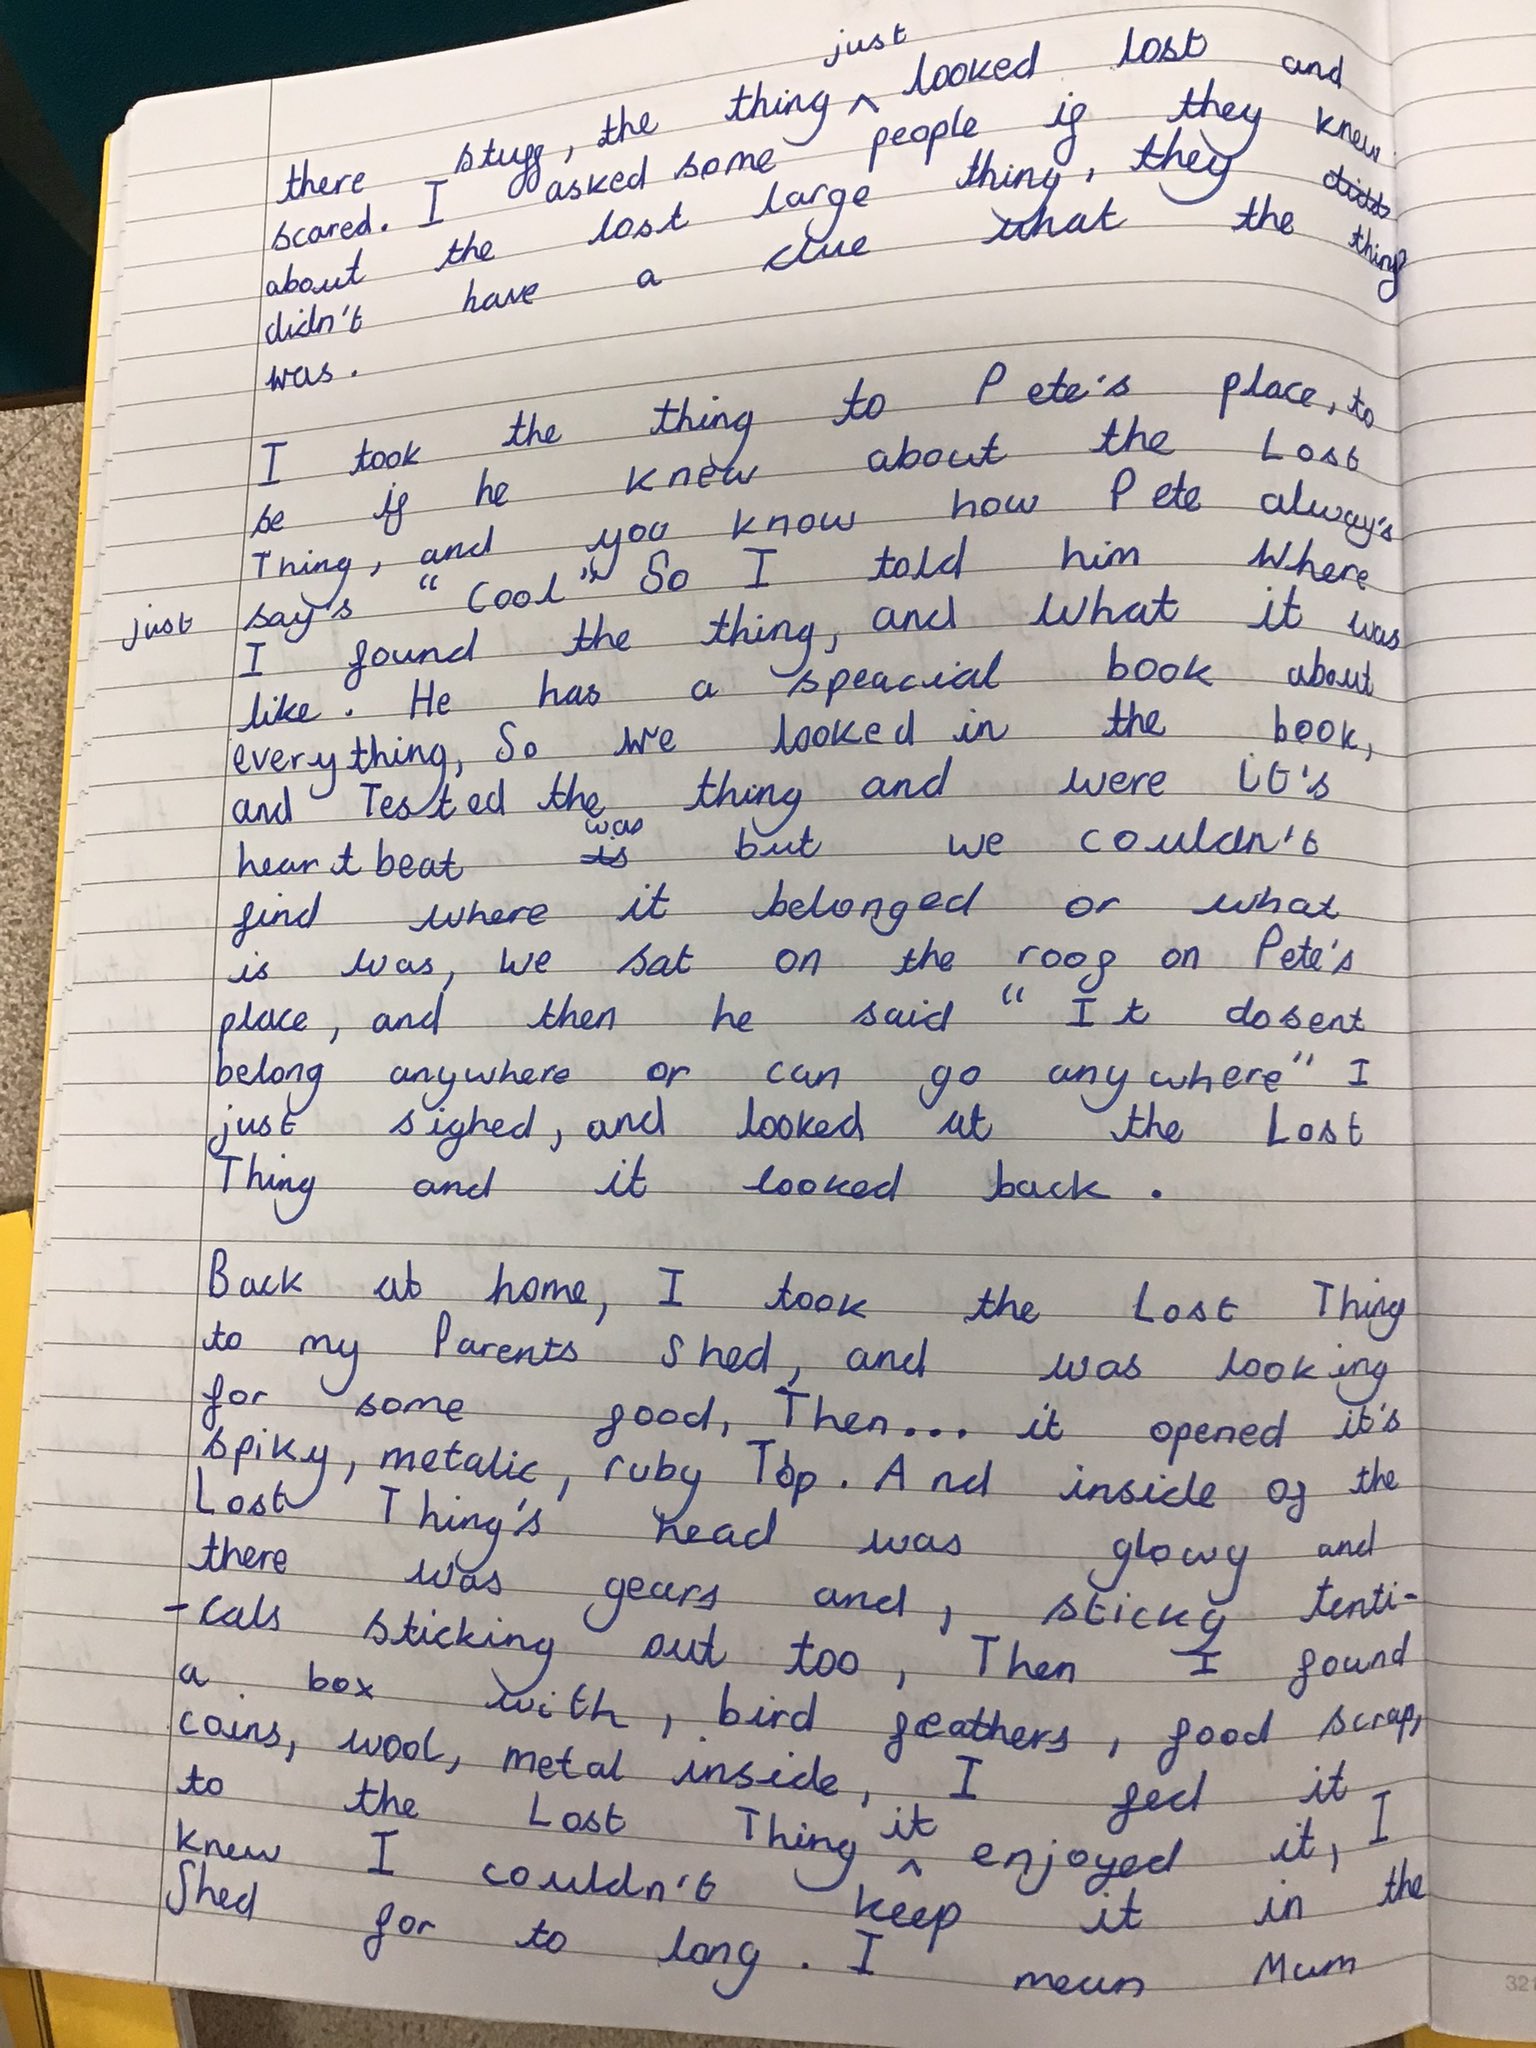 there stuff, the thing ^just looked lost and
scared. I asked some people if they knew
about the lost large thing, they didd
didn't have a clue what the thing
was.
I took the thing to Pete's place, to
se if he knew about the Lost
Thing, and you know how Pete alway's
just say's "Cool" So I told him Where
I found the thing, and What it was
like. He has a speacial book about
everything, So We looked in the book,
and Tested the thing and were it's
heartbeat is was but we couldn't
find where it belonged or what
is was, We sat on the roof on Pete's
place, and then he said "It dosent
belong anywhere or can go anywhere" I
just sighed, and looked at the Lost
Thing and it looked back.
Back at home, I took the Lost Thing
to my Parents Shed, and was looking
for some food, Then... it opened it's
spiky, metalic, ruby Top. And inside of the
Lost Thing's head was glowy and
there was gears and, sticky tenti-
-cals sticking out too, Then I found
a box with, bird feathers, food scrap,
coins, wool, metal inside, I fed it
to the Lost Thing ^it enjoyed it, I
knew I couldn't keep it in the
Shed for to long. I mean Mum
321